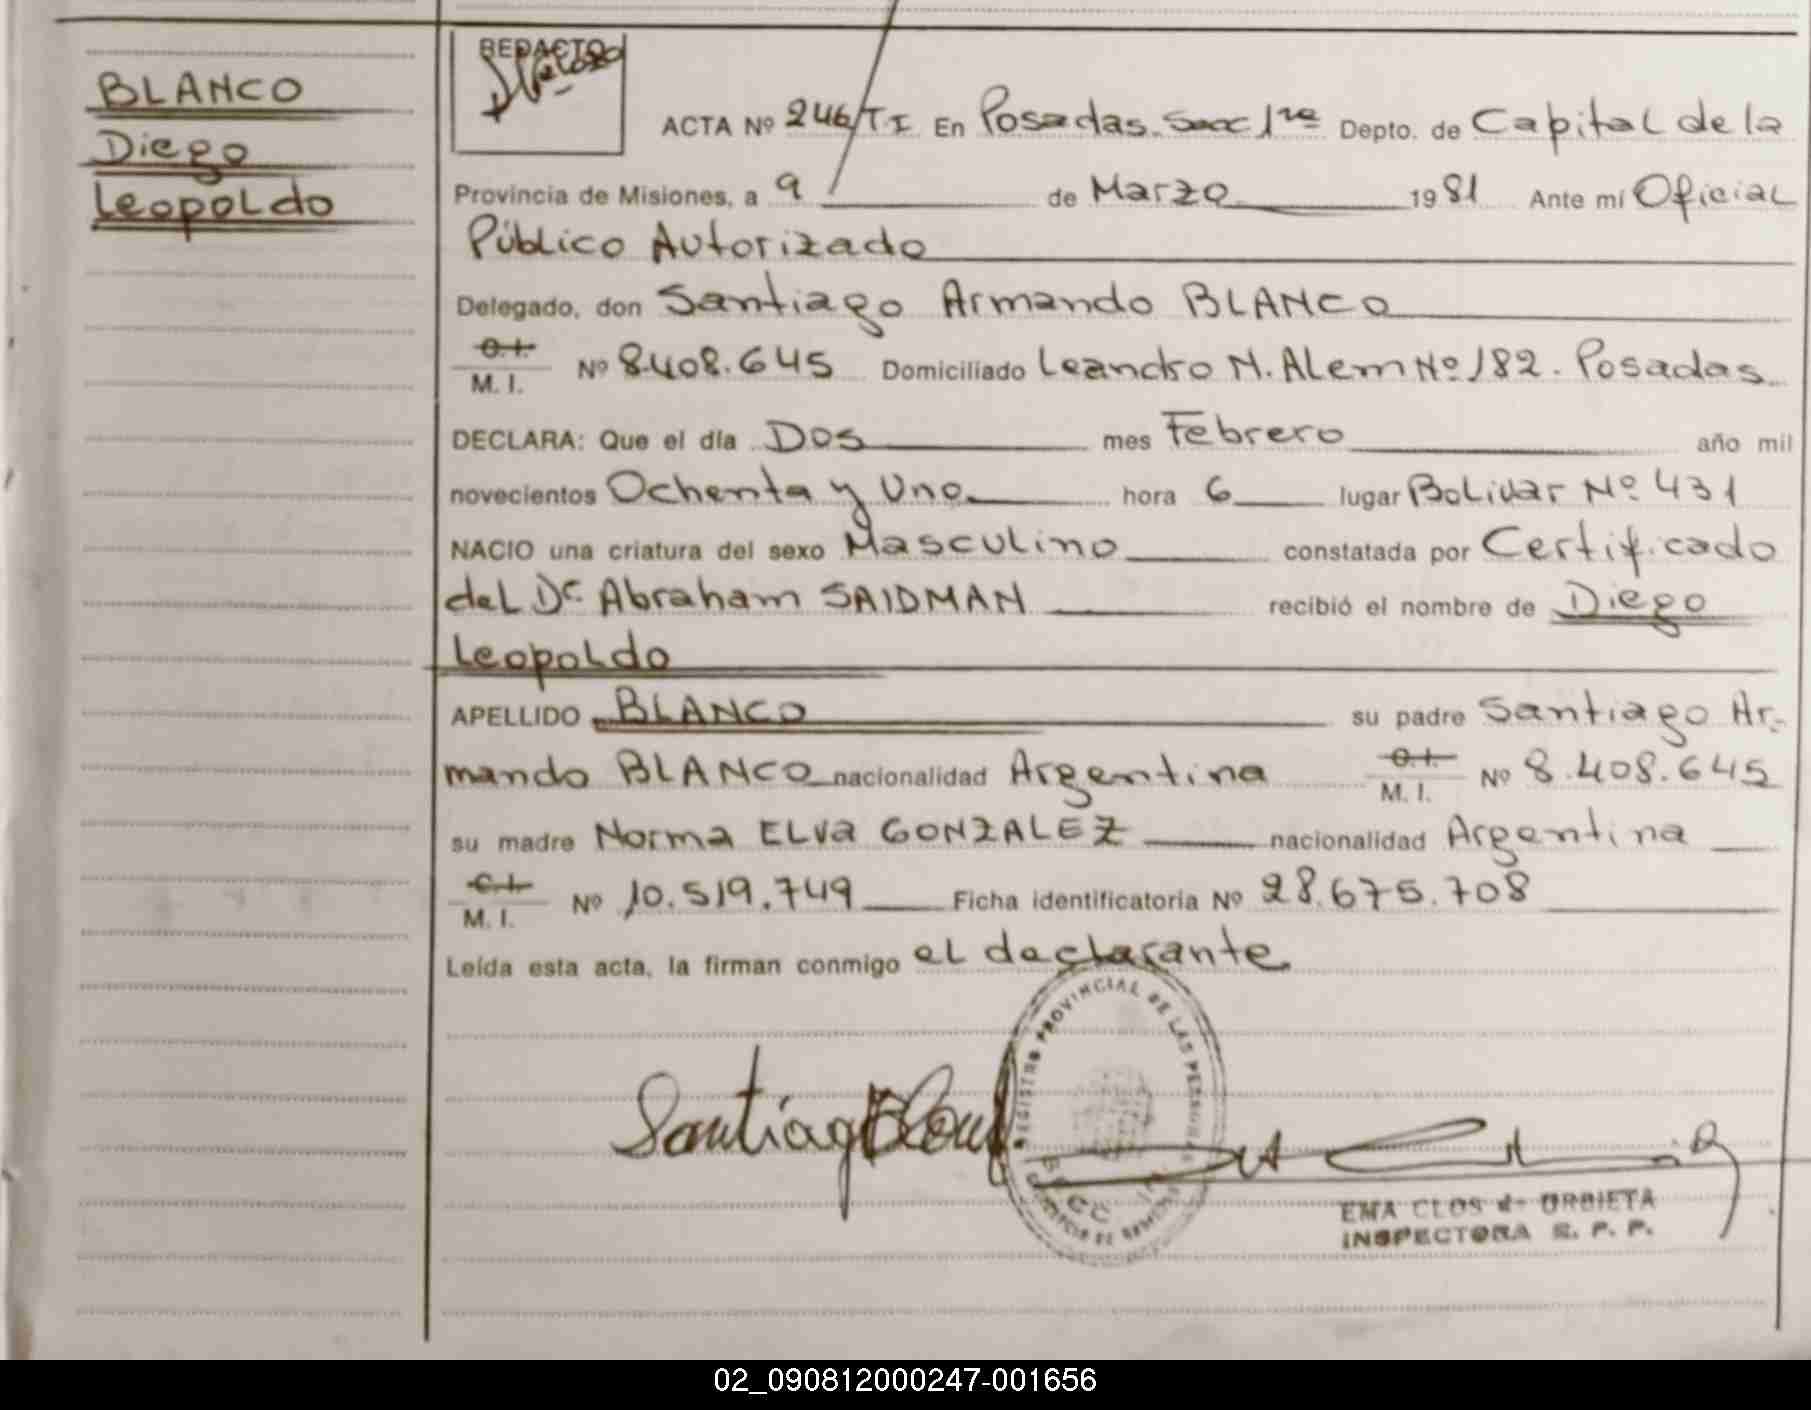 BLANCO
Diego
Leopoldo
REDACTO
ACTA Nº 246/T.I En Posadas. Secc 1ra Depto. de Capital de la
Provincia de Misiones, a 9 de Marzo 1981 Ante mí Oficial
Público Autorizado
Delegado, don Santiago Armando BLANCO
C.I.
M. I. Nº 8.408.645 Domiciliado Leandro N. Alem Nº 182. Posadas
DECLARA: Que el día Dos mes Febrero año mil
novecientos Ochenta y Uno hora 6 lugar Bolivar Nº 431
NACIO una criatura del sexo Masculino constatada por Certificado
del Dr Abraham SAIDMAN recibió el nombre de Diego
Leopoldo
APELLIDO BLANCO su padre Santiago Ar-
mando BLANCO nacionalidad Argentina C.I. M. I. Nº 8.408.645
su madre Norma ELva GONZALEZ nacionalidad Argentina
C.I.
M. I. Nº 10.519.749 Ficha identificatoria Nº 28.675.708
Leída esta acta, la firman conmigo el declarante
REGISTRO PROVINCIAL DE LAS PERSONAS
Santiago Blanco
EMA CLOS de URBIETA
INSPECTORA R. P. P.
02_090812000247-001656